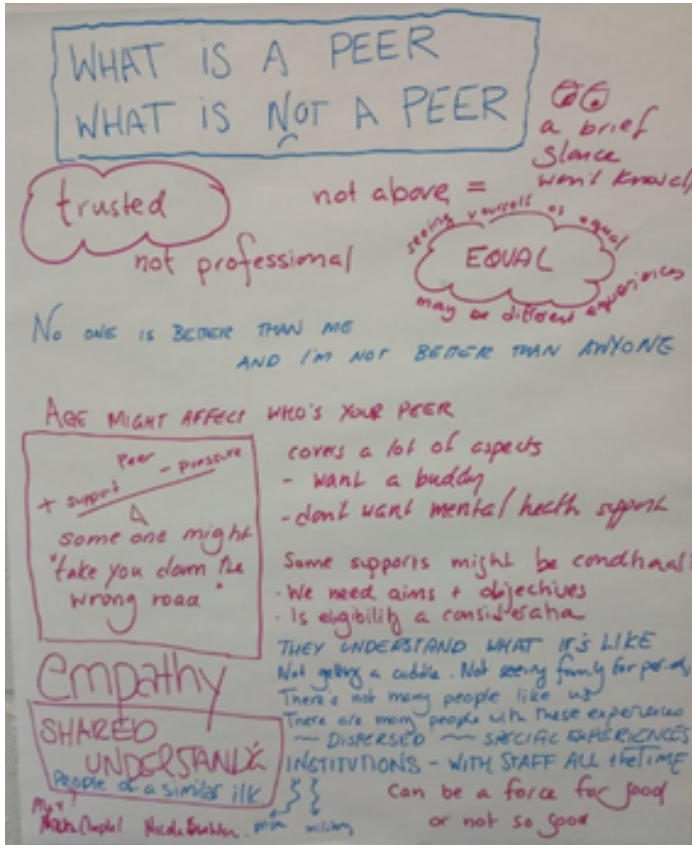 WHAT IS A PEER
WHAT IS NOT A PEER
a brief
glance
won't know
trusted
not above =
not professional
seeing yourself as equal
EQUAL
may be different experiences
NO ONE IS BETTER THAN ME
AND I'M NOT BETTER THAN ANYONE
AGE MIGHT AFFECT WHO'S YOUR PEER
Peer
+ support
- pressure
some one might
"take you down the
wrong road"
covers a lot of aspects
- want a buddy
- don't want mental health support
Some supports might be
· We need aims + objectives
· Is eligibility a
THEY UNDERSTAND WHAT IT'S LIKE
Not getting a cuddle. Not seeing family for
There's not many people like us
There are many people with these experiences
~ DISPERSED ~ SPECIAL EXPERIENCES
INSTITUTIONS - WITH STAFF ALL the TIME
prison
military
can be a force for good
or not so good
empathy
SHARED
People of a similar ilk